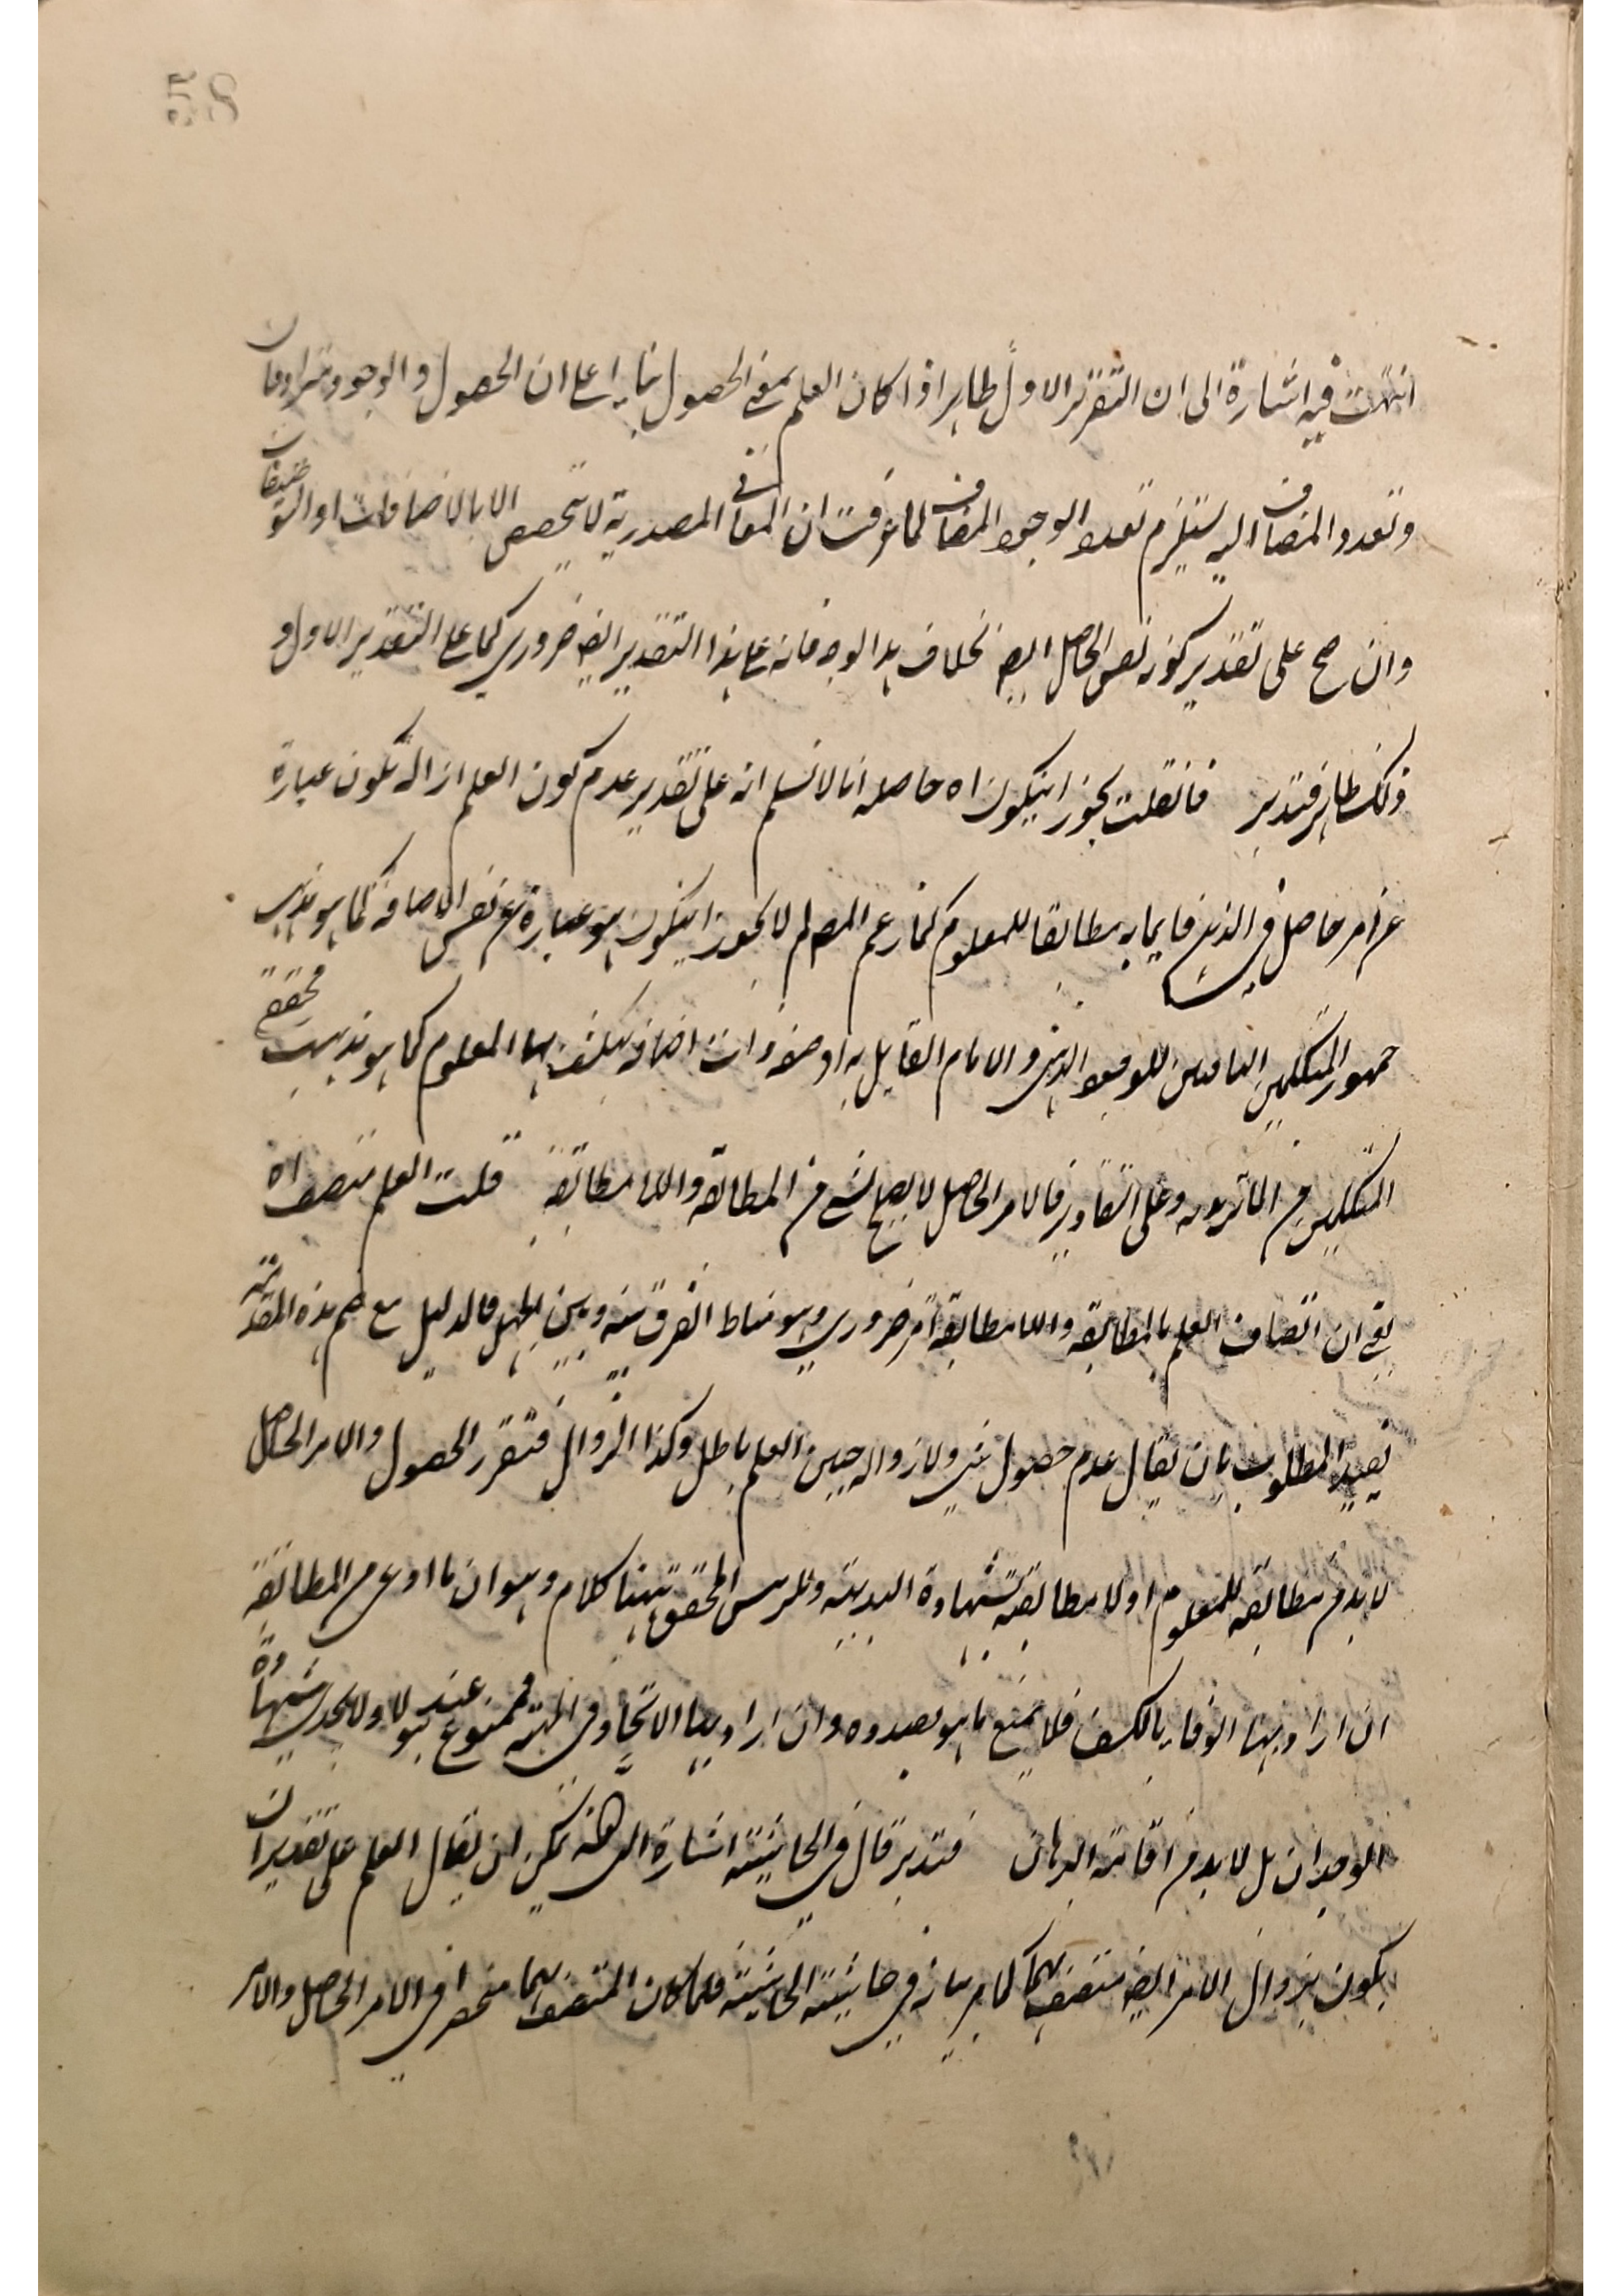 58
انتهت فيه اشارة الى ان التقرير الاول ظاهر اذا كان العلم بمعنى الحصول بناء على ان الحصول والوجود مترادفان
وتعدد المضاف اليه يستلزم تعدد الوجود المضاف لما عرفت ان المعاني المصدرية لا تتحصص الا بالاضافات او التوصيفات
وان صح على تقدير كونه نفس الحاصل ايضا بخلاف هذا الوجه فانه على هذا التقدير ايضا ضروري كما على التقدير الاول و
ذلك ظاهر فتدبر فانقلت يجوز انيكون اه حاصله انا لا نسلم انه على تقدير عدم كون العلم ازالة يكون عبارة
عن امر حاصل في الذهن قايما به مطابقا للمعلوم كما زعم المص لم لا يجوز انيكون هو عبارة عن نفس الاضافة كما هو مذهب
جمهور المتكلمين النافين للوجود الذهني والامام القايل به او صفة ذات اضافة ينكشف بها المعلوم كما هو مذهب محققي
المتكلمين من الماتريديه وعلى التقادير فالامر الحاصل لا يصح لشئ من المطابقة واللامطابقة قلت العلم يتصف اه
يعني ان اتصاف العلم بالمطابقة واللامطابقة امر ضروري وهو مناط الفرق بينه وبين الجهل فالدليل مع ضم هذه المقدمة
يفيد المطلوب بان يقال عدم حصول شئ ولا زواله حين العلم باطل وكذا الزوال فتقرر الحصول والامر الحاصل
لا بد من مطابقة للمعلوم او لا مطابقة بشهادة البديهة وللمدرس المحقق ههنا كلام وهو ان ما ادعى من المطابقة
ان اراد بها الوفاء بالكشف فلا يمنع ما هو بصدده وان اراد بها الاتحاد في المهية فممنوع عند هؤلاء ولا يجدي شهادة
الوجدان بل لا بد من اقامة البرهان فتدبر قال في الحاشية اشارة الى انه يمكن ان يقال العلم على تقدير ان
يكون بزوال الامر ايضا متصف بهما كما مر بيانه في حاشية الحاشية فلما كان المتصف بهما منحصرا في الامر الحاصل والامر